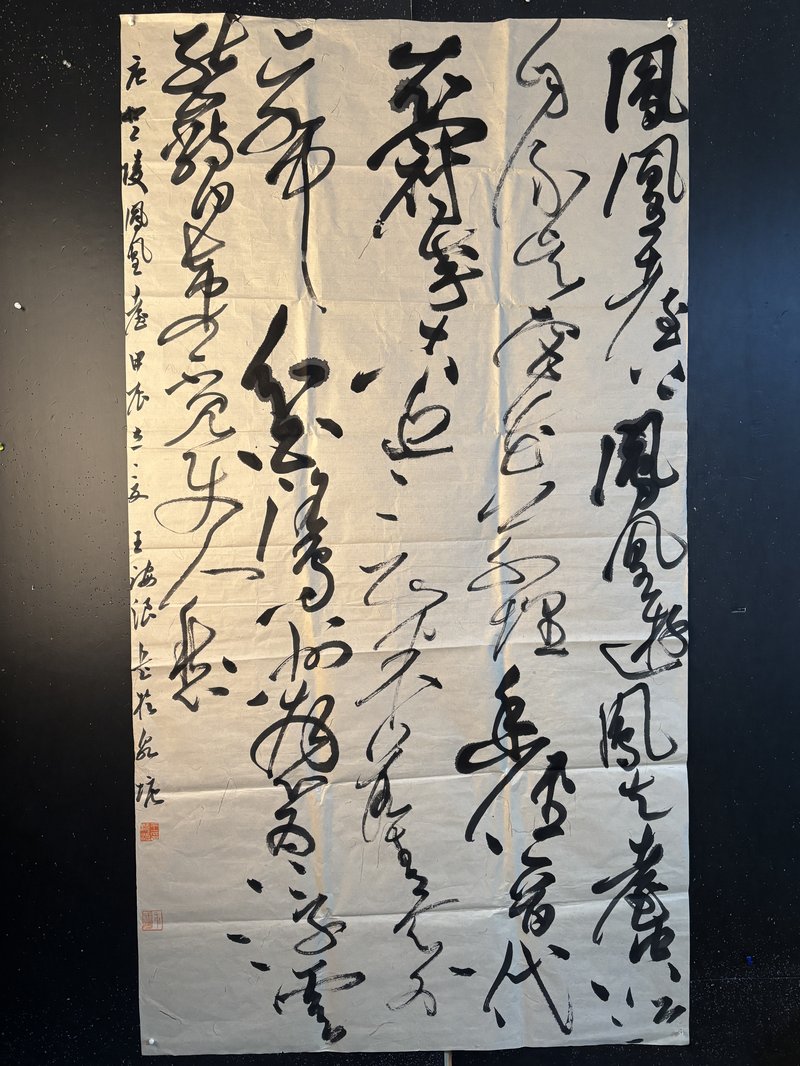 鳳凰臺上鳳凰遊鳳去臺空江
自流吳宮花草埋幽徑晉代
衣冠成古丘三山半落青天外
二水中分白鷺洲總為浮雲
能蔽日長安不見使人愁
唐 陵鳳凰臺甲辰之夏王海浪書於